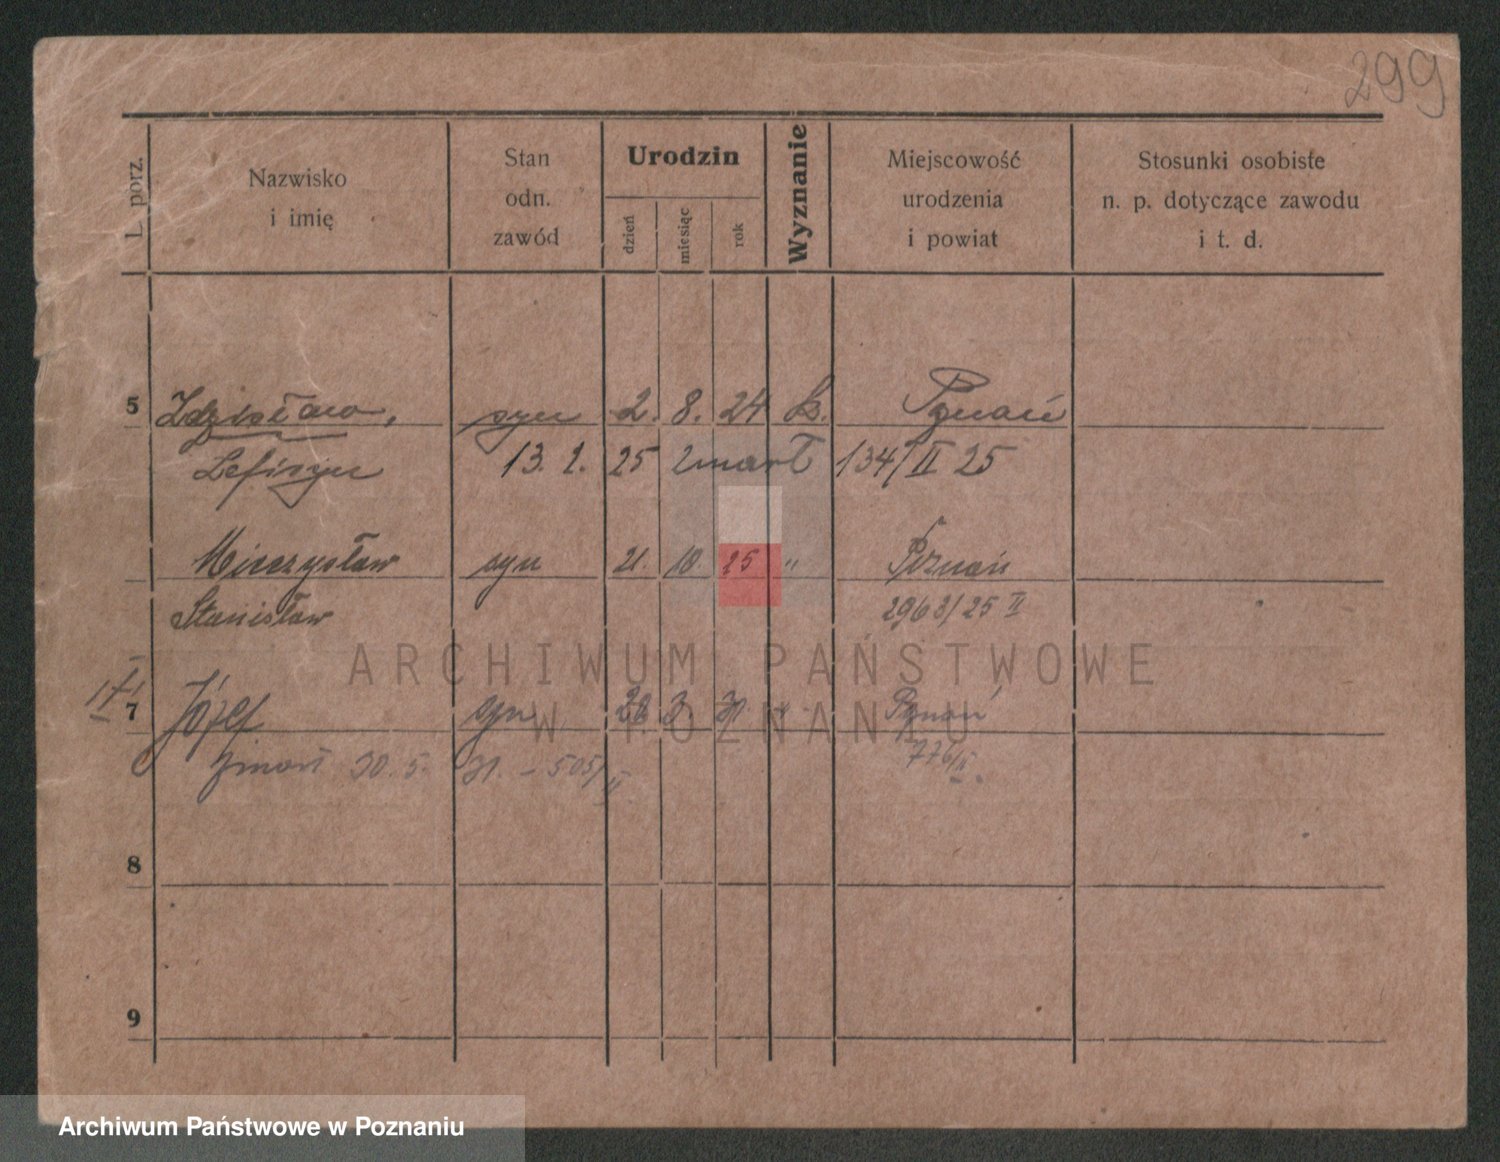 299
L. porz.
Nazwisko
i imię
Stan
odn.
zawód
Urodzin
dzień
miesiąc
rok
Wyznanie
Miejscowość
urodzenia
i powiat
Stosunki osobiste
n. p. dotyczące zawodu
i t. d.
5 Zdzisław, syn 2. 8. 24 k. Poznań
13. 2. 25 zmarł 134/II 25
Mieczysław syn 21. 10. 25 " Poznań
Stanisław 2963/25 II
7 Józef syn 28 3. 31 Poznań
zmarł 30. 5. 31. – 505/II 776/II.
8
9
ARCHIWUM PAŃSTWOWE
W POZNANIU
Archiwum Państwowe w Poznaniu